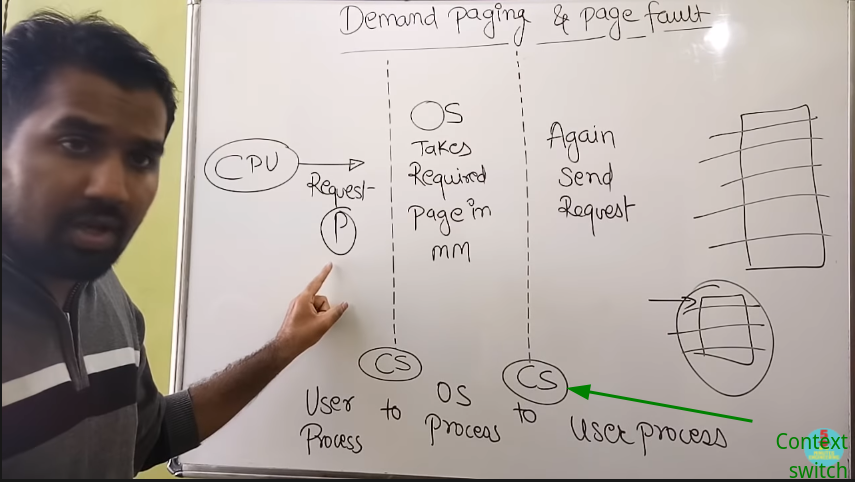 Demand paging & page fault
CPU
Request
P
OS
Takes
Required
page in
mm
Again
Send
Request
CS
CS
User
Process
to
OS
process
to
user process
Context
switch
5